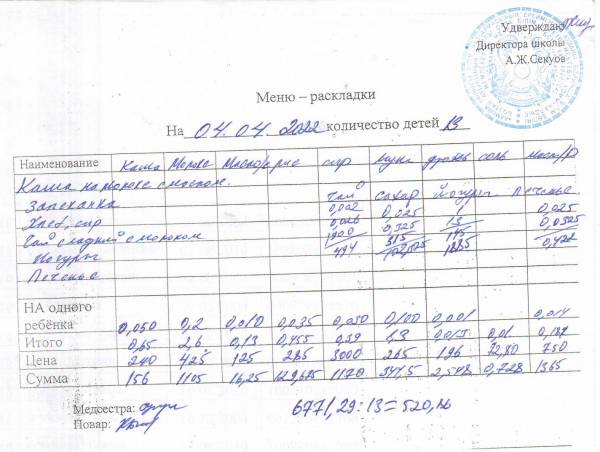 Удверждаю
Директора школы
А.Ж.Секуов
Меню – раскладки
На 04. 04. 2022 количество детей 13
Наименование Каша Молоко Масло рис сыр мука дрожж соль масл/р
Каша на молоке с маслом.
Запеканка чай сахар йогурт печенье
Хлеб, сыр 0,002 0,025 1 0,025
Чай сладкий с молоком 0,026 0,325 13 0,0325
Йогурт 1900 315 145
Печенье 494 1885
НА одного
ребёнка 0,050 0,2 0,010 0,035 0,030 0,100 0,001 0,014
Итого 0,65 2,6 0,13 0,455 0,39 1,3 0,013 0,01 0,182
Цена 240 425 125 285 3000 265 196 72,80 750
Сумма 156 1105 16,25 129,675 1170 344,5 2,548 0,728 1365
Медсестра:
Повар:
6771,29 : 13 = 520,86